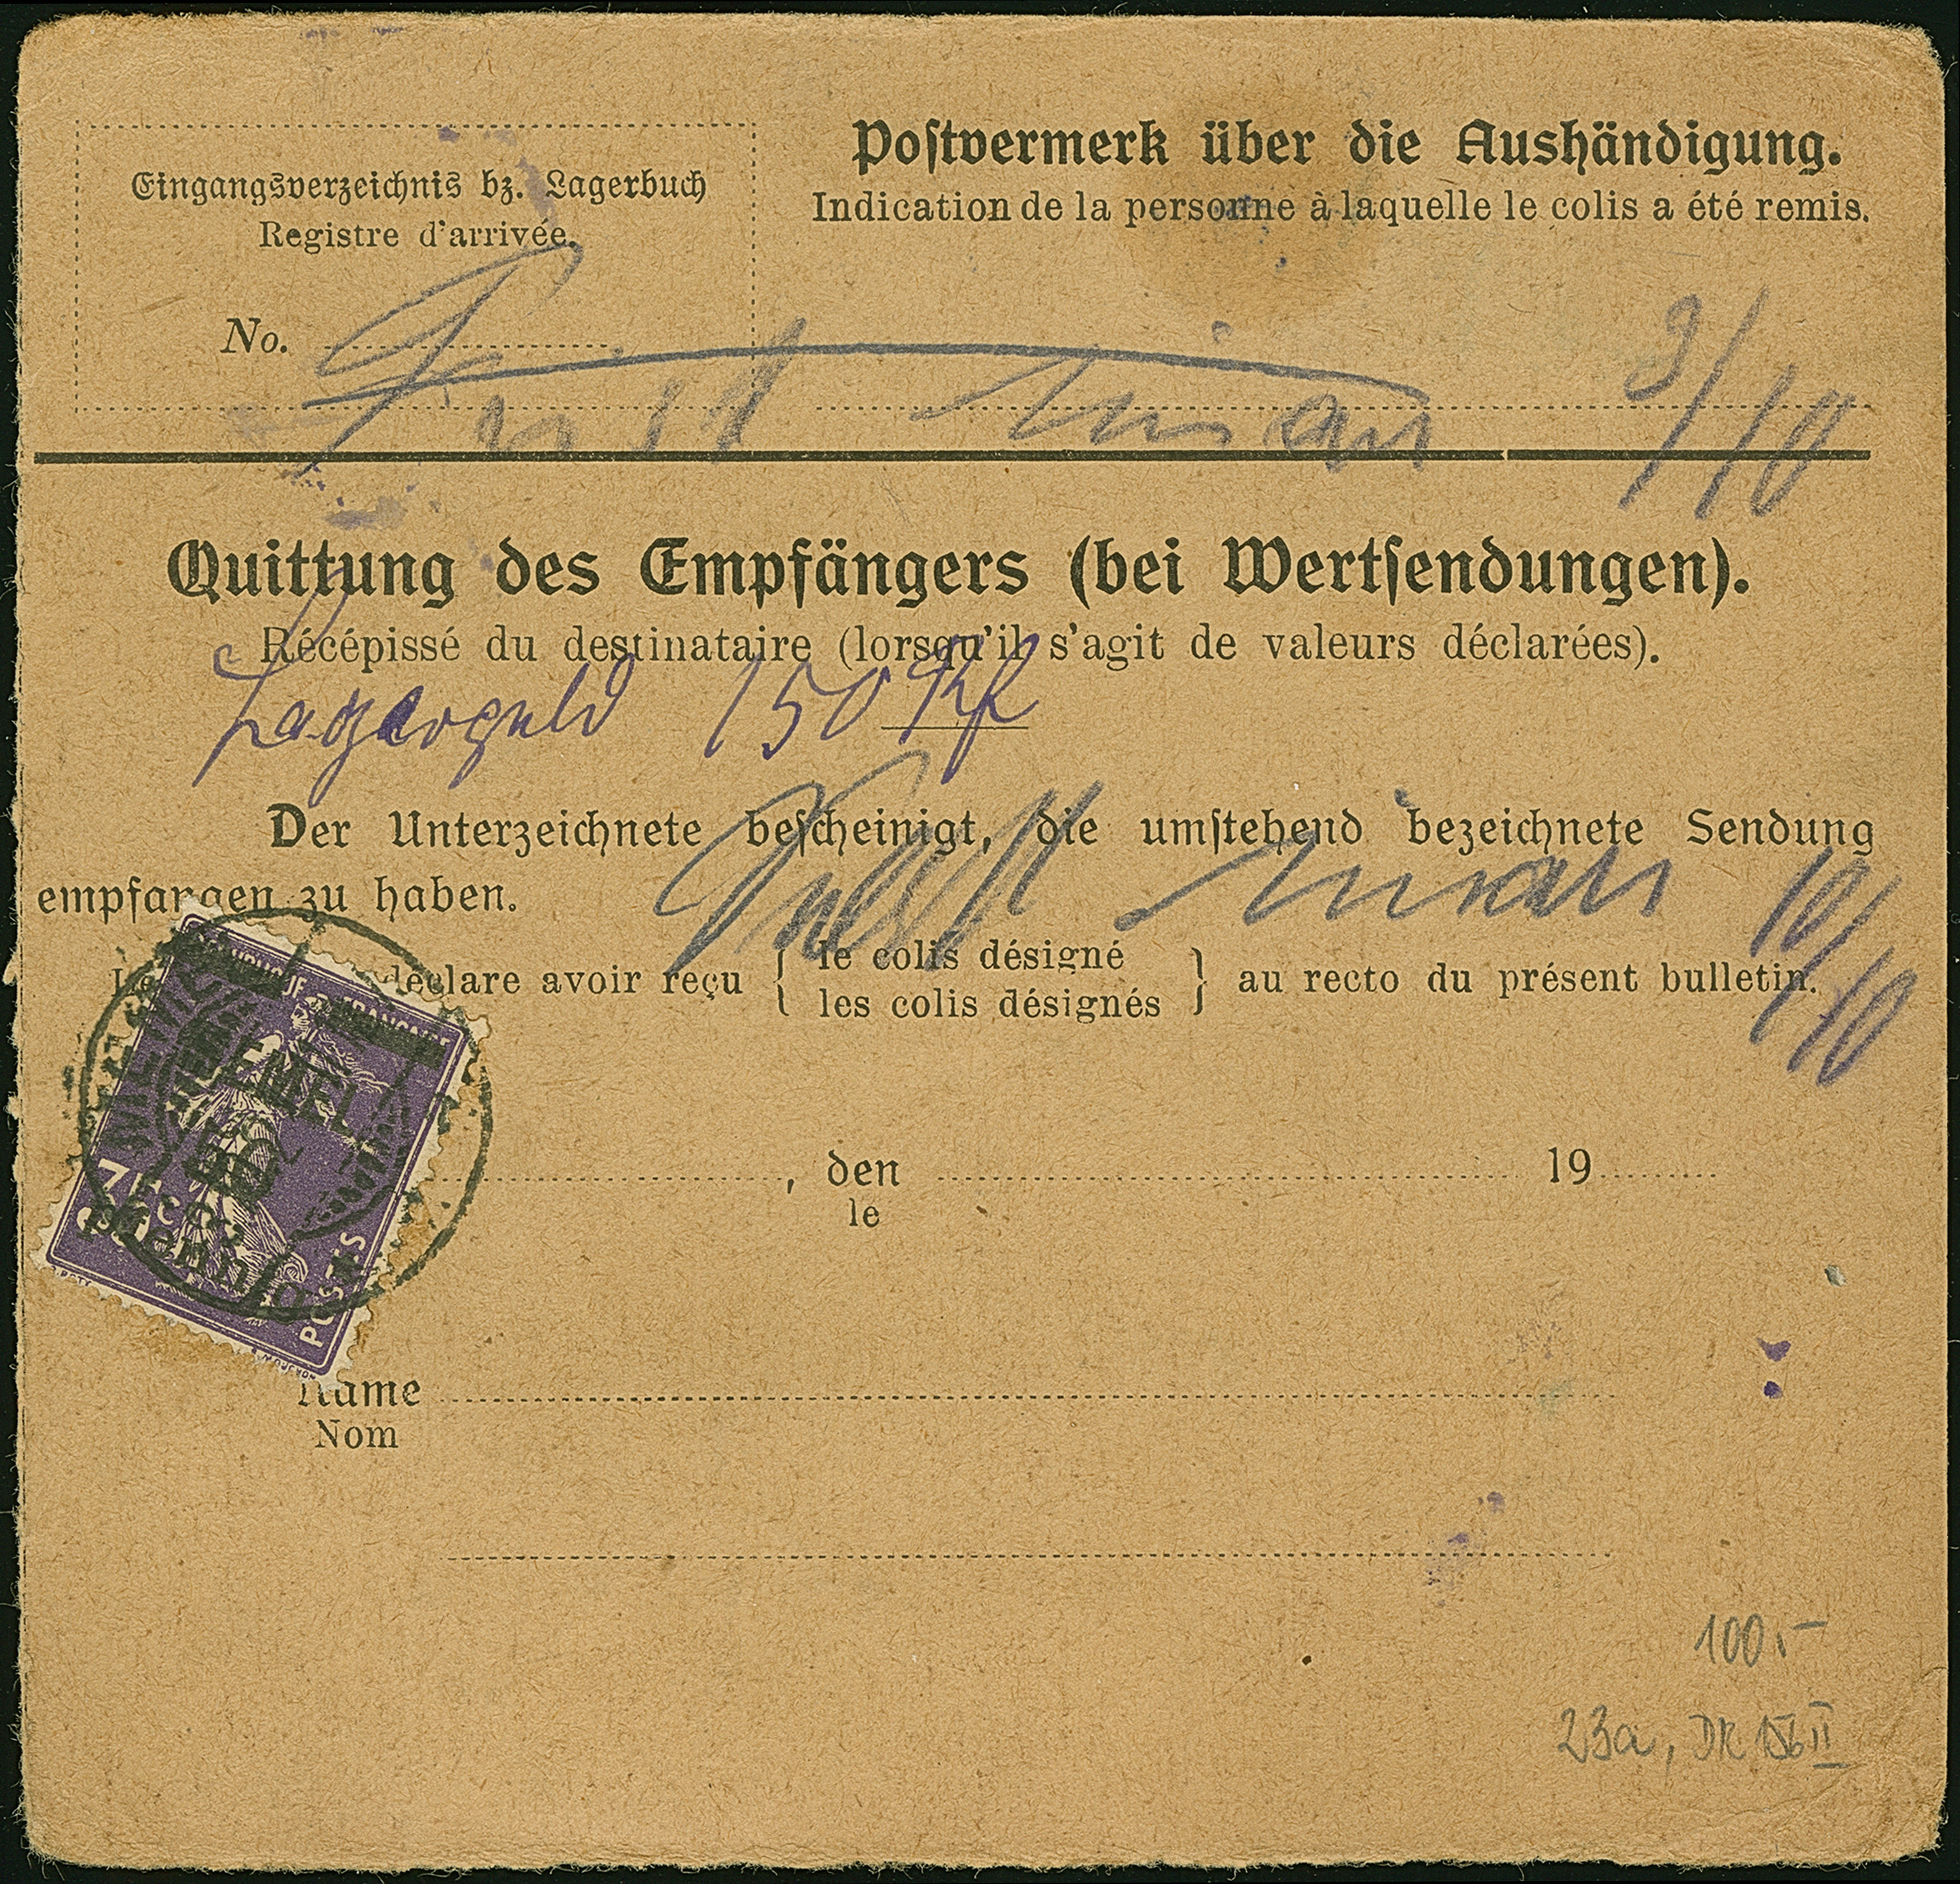 Eingangsverzeichnis bz. Lagerbuch
Registre d'arrivée.
No.
Postvermerk über die Aushändigung.
Indication de la personne à laquelle le colis a été remis.
9/10
Quittung des Empfängers (bei Wertsendungen).
Récépissé du destinataire (lorsqu'il s'agit de valeurs déclarées).
Lagergeld 150 Pf
Der Unterzeichnete bescheinigt, die umstehend bezeichnete Sendung
empfangen zu haben.
10/10
déclare avoir reçu { le colis désigné
les colis désignés } au recto du présent bulletin.
FRANÇAISE
MEMEL
POSTES
, den 19
le
Name
Nom
100.-
23a, DR 156 II